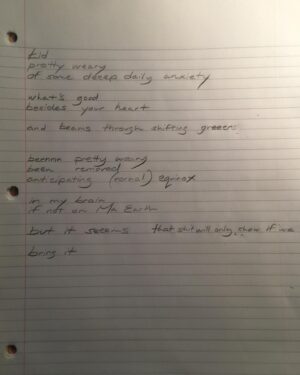 kid
pretty weary
of some deeep daily anxiety
what's good
besides your heart
and beams through shifting greeen
beennn pretty weary
been removed
anticipating (vernal) equinox
in my brain
if not on Ma Earth
but it seems that shit will only show if we
bring it